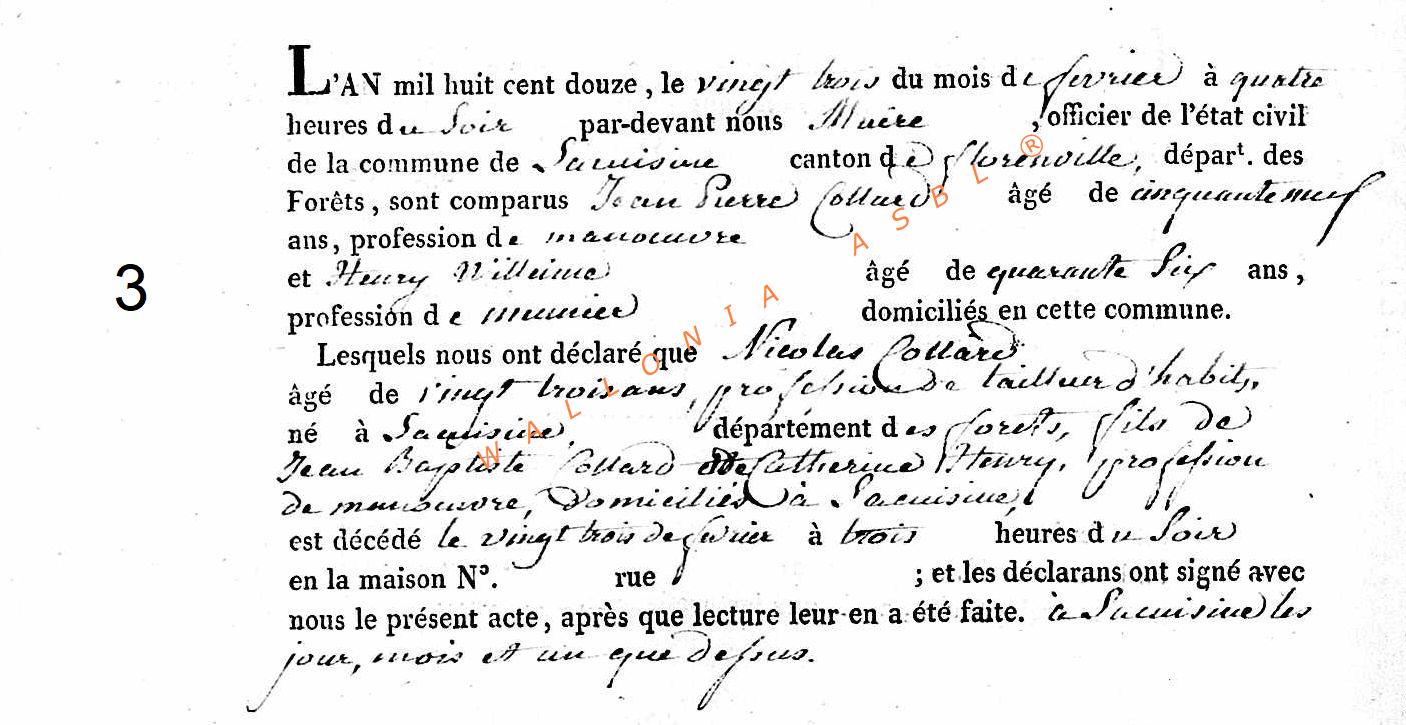 L'AN mil huit cent douze, le vingt trois du mois de fevrier à quatre
heures du Soir par-devant nous Maire, officier de l'état civil
de la commune de Lacuisine canton de florenville, départ. des
Forêts, sont comparus Jean Pierre Collard âgé de cinquante neuf
ans, profession de manoeuvre
et Henry Willeime âgé de quarante Six ans,
3
profession de meunier domiciliés en cette commune.
Lesquels nous ont déclaré que Nicolas Collard
âgé de vingt trois ans, profession de tailleur d'habits,
né à Lacuisine, département des forets, fils de
Jean Baptiste Collard et de Catherine Henry, profession
de manouvre, domiciliés à Lacuisine,
est décédé le vingt trois de fevrier à trois heures du Soir
en la maison N°. rue ; et les déclarans ont signé avec
nous le présent acte, après que lecture leur en a été faite. à Lacuisine les
jour, mois et an que dessus.
WALLONIA ASBL ®